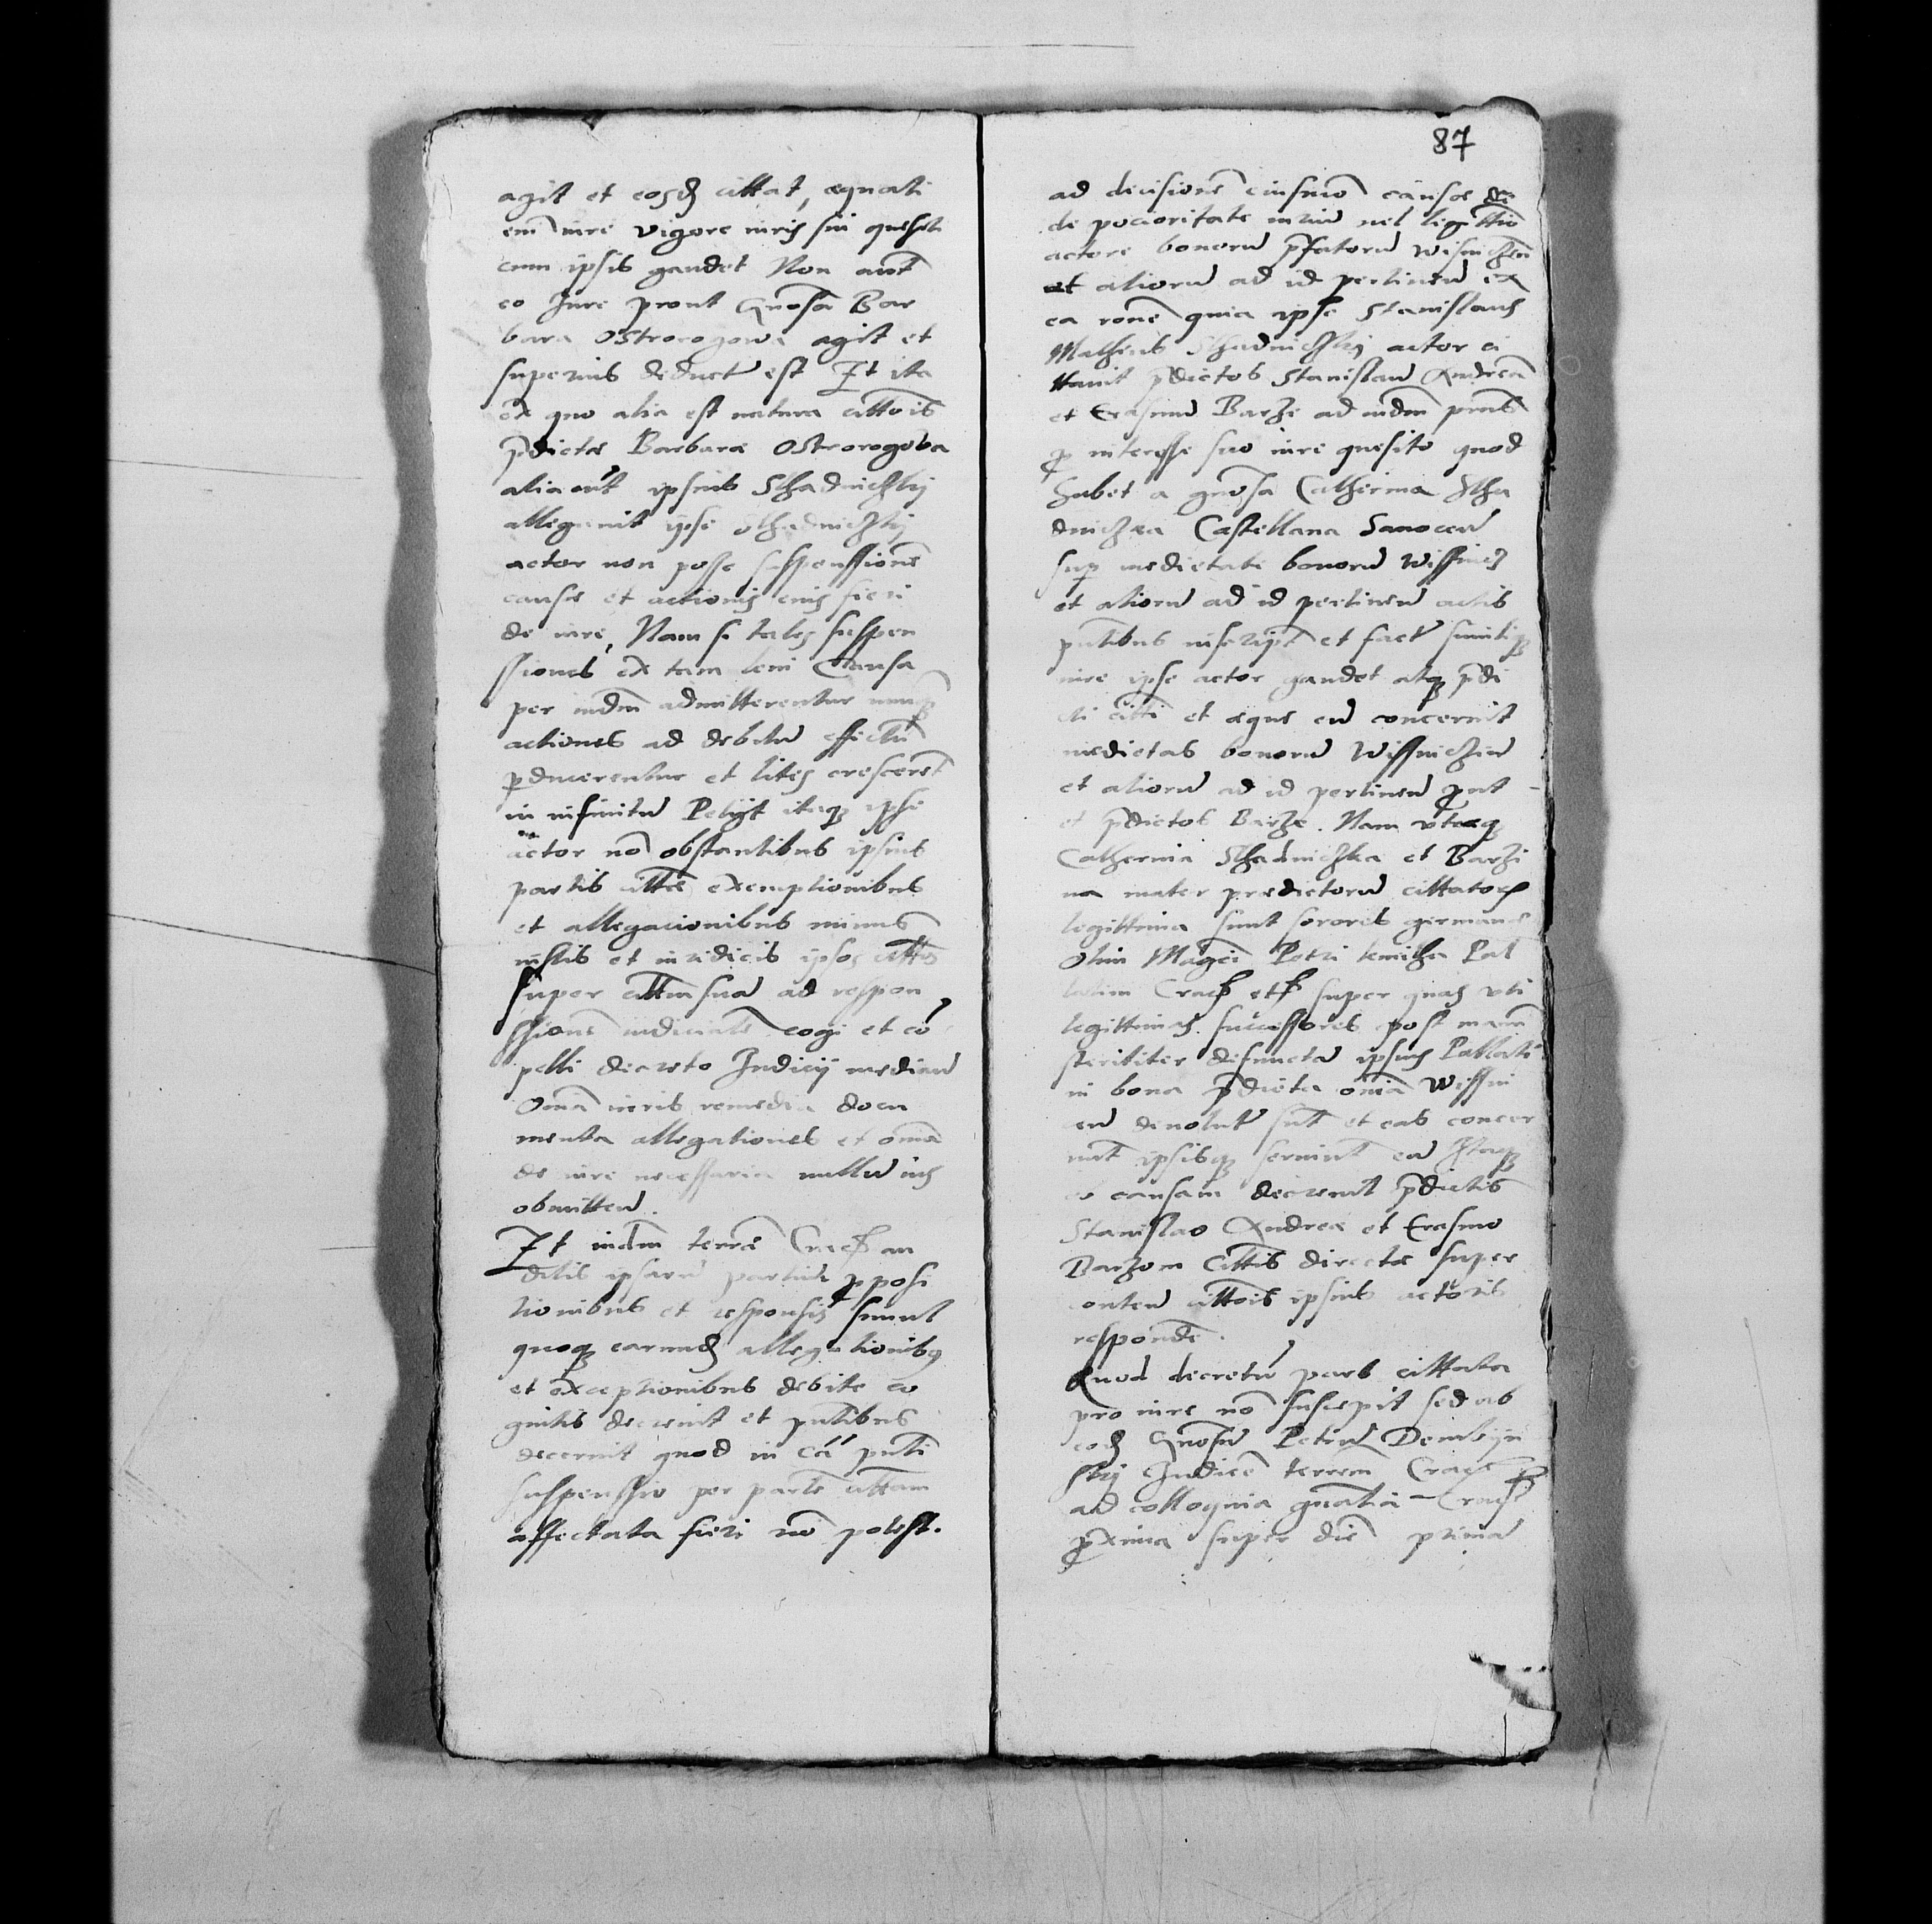 agit et eosd cittat, equali
em iure vigore iuris sui quesiti
cum ipsis gaudet Non aut
eo Jure prout Gnosa Bar
bara Ostrorogowa agit et
superius deduct est Et ita
ex quo alia est natura cittois
pdicte Barbare Ostrorogowa
alia aut ipsius Sthadnichky
allegavit ipse Sthadnichky
actor non posse suspenssione
cause et actionis eius fieri
de iure, Nam si tales suspen
ssiones ex tam levi Causa
per iudm admitterentur nunq
actiones ad debitu effectu
pducerentur et lites crescerent
in infinitu Petijt itaq ipse
actor no obstantibus ipsius
partis citte exemptionibus
et allegacionibus minus
iustis et iuridicis ipsos cittos
super cittm sua ad respon
ssione iudiciale cogi et co
pelli decreto Judicij median
Omia iuris remedia docu
menta allegationes et omia
de iure necessaria nullu ius
obmitten.
Et iudm terre Crac au
ditis ipsaru partiu pposi
tionibus et responsis simul
quoq earund allegationibus
et exceptionibus debite co
gnitis decrevit et pntibus
decernit quod in ca pnti
suspenssio per parte cittam
affectata fieri no potest.
87
ad decisione eiusmo cause de
de pocioritate iuriu vel legittio
actore bonoru pfatoru Wisniczen
et alioru ad id pertinen ex
ea rone quia ipse Stanislaus
Matheus Sthadnichky actor ci
ttavit pdictos Stanislau Andrea
et Erasmu Barzi ad iudm pns
p interesse suo iure quesito quod
habet a gnosa Catherina Stha
dnichka Castellana Sanocen
sup medietate bonoru Wissnicz
et alioru ad id pertinen actis
pntibus inscript et fact similiq
iure ipse actor gaudet atq pdi
cti citti et eque eu concernit
medietas bonoru Wissniczien
et alioru ad id pertinen put
et pdictos Barze. Nam utraq
Catherina Sthadnichka et Barzi
na mater predictoru cittator
legittima sunt sorores germane
Olim Magci Petri kmitha Pal
latini Crac etc super quas uti
legittimas successores post mam
steriliter defuncta ipsius Pallati
in bona pdicta omia Wissni
cen devolut sut et eas concer
nut ipsisq serviut ea Itaq
ob causam decrevit pdictis
Stanislao Andree et Erasmo
Barzom Cittis directe super
conten cittois ipsius actoris
responde.
Quod decretu pars cittata
pro iure no suscepit sed ab
eod Gnosu Petru Dembijn
sky Judice terrem Crac p
ad colloquia gnalia Crac
pxima super die prima